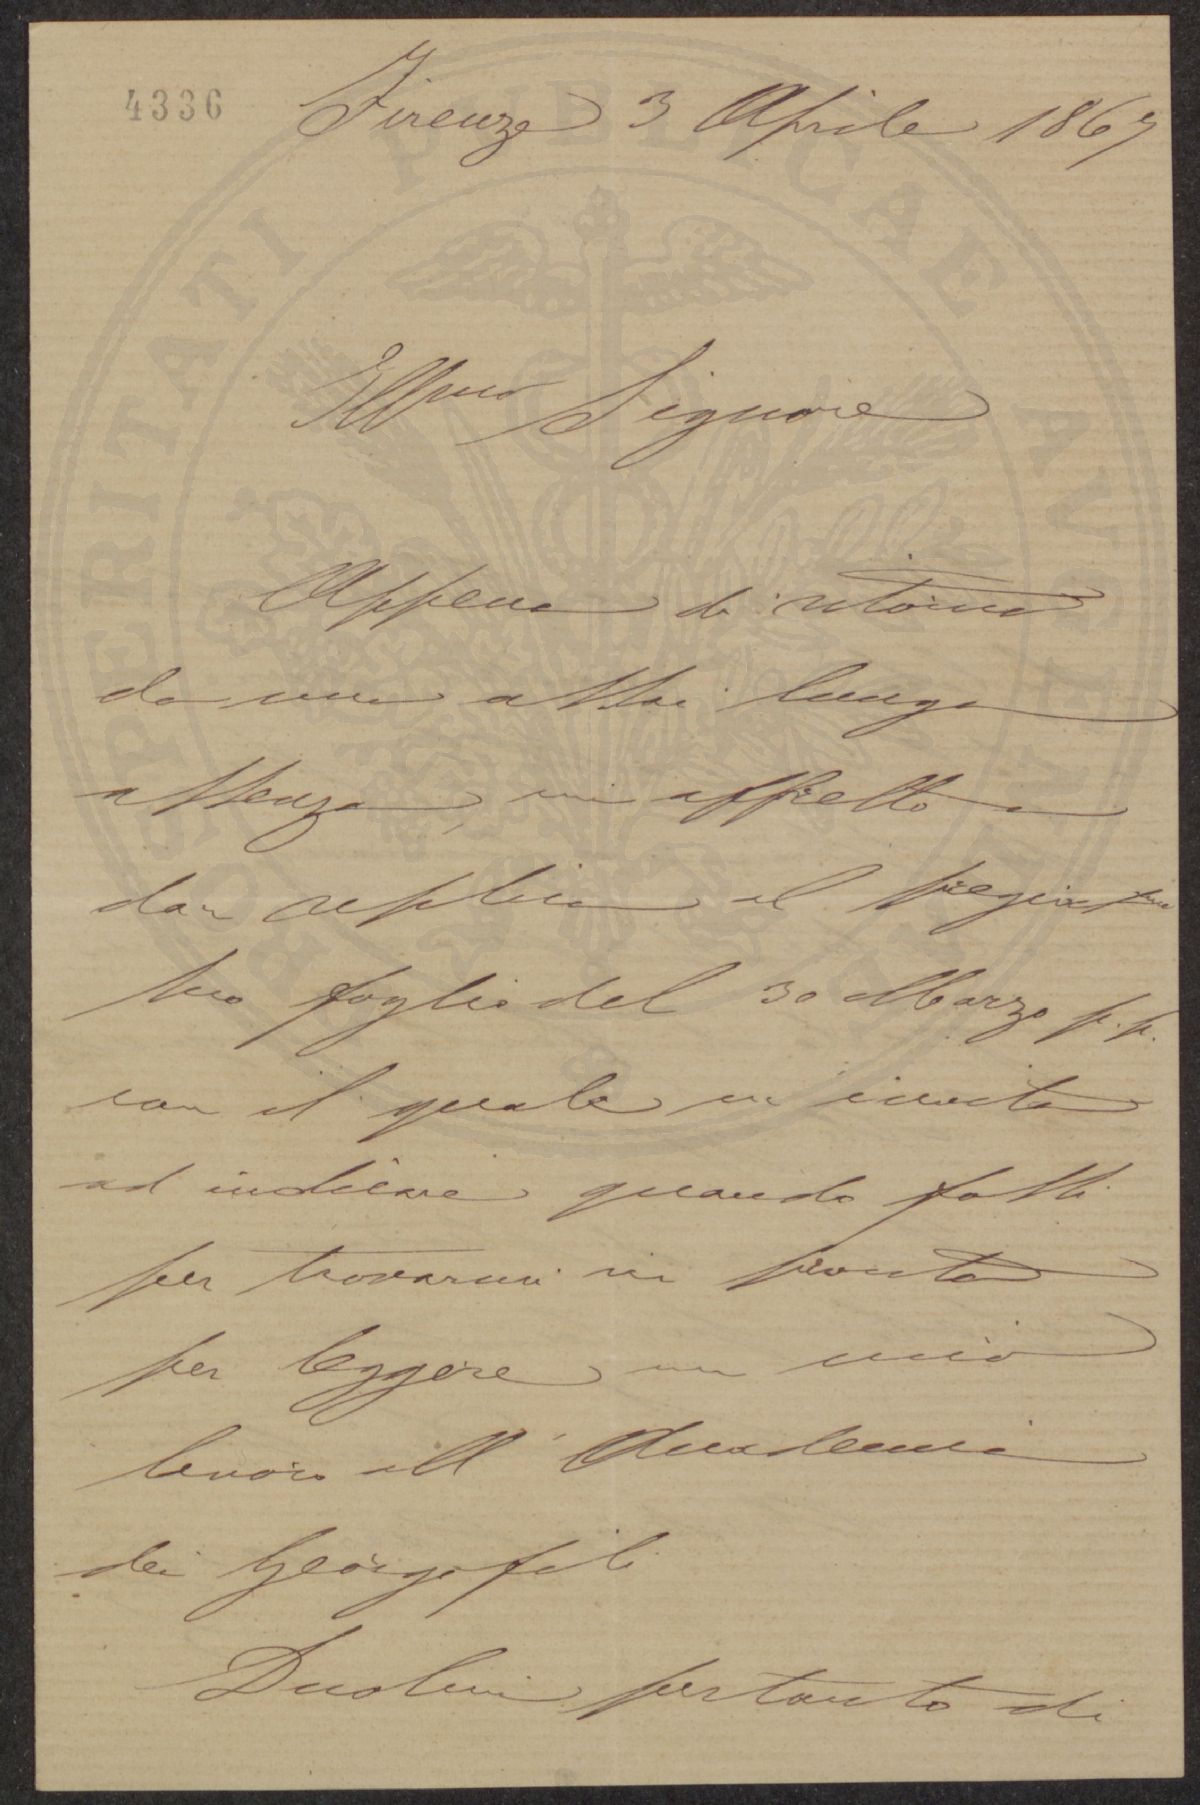 4336
Firenze 3 Aprile 1867
Illmo Signore
Appena di ritorno
da una assai lunga
assenza, mi affretto a
dar replica al pregia
suo foglio del 30 Marzo p.p.
con il quale m'invita
ad indicare quando fossi
per trovarmi in pronto
per leggere un mio
lavoro all'Accademia
dei Georgofili
Duolmi pertanto di
PROSPERITATI PUBLICAE AUGENDAE